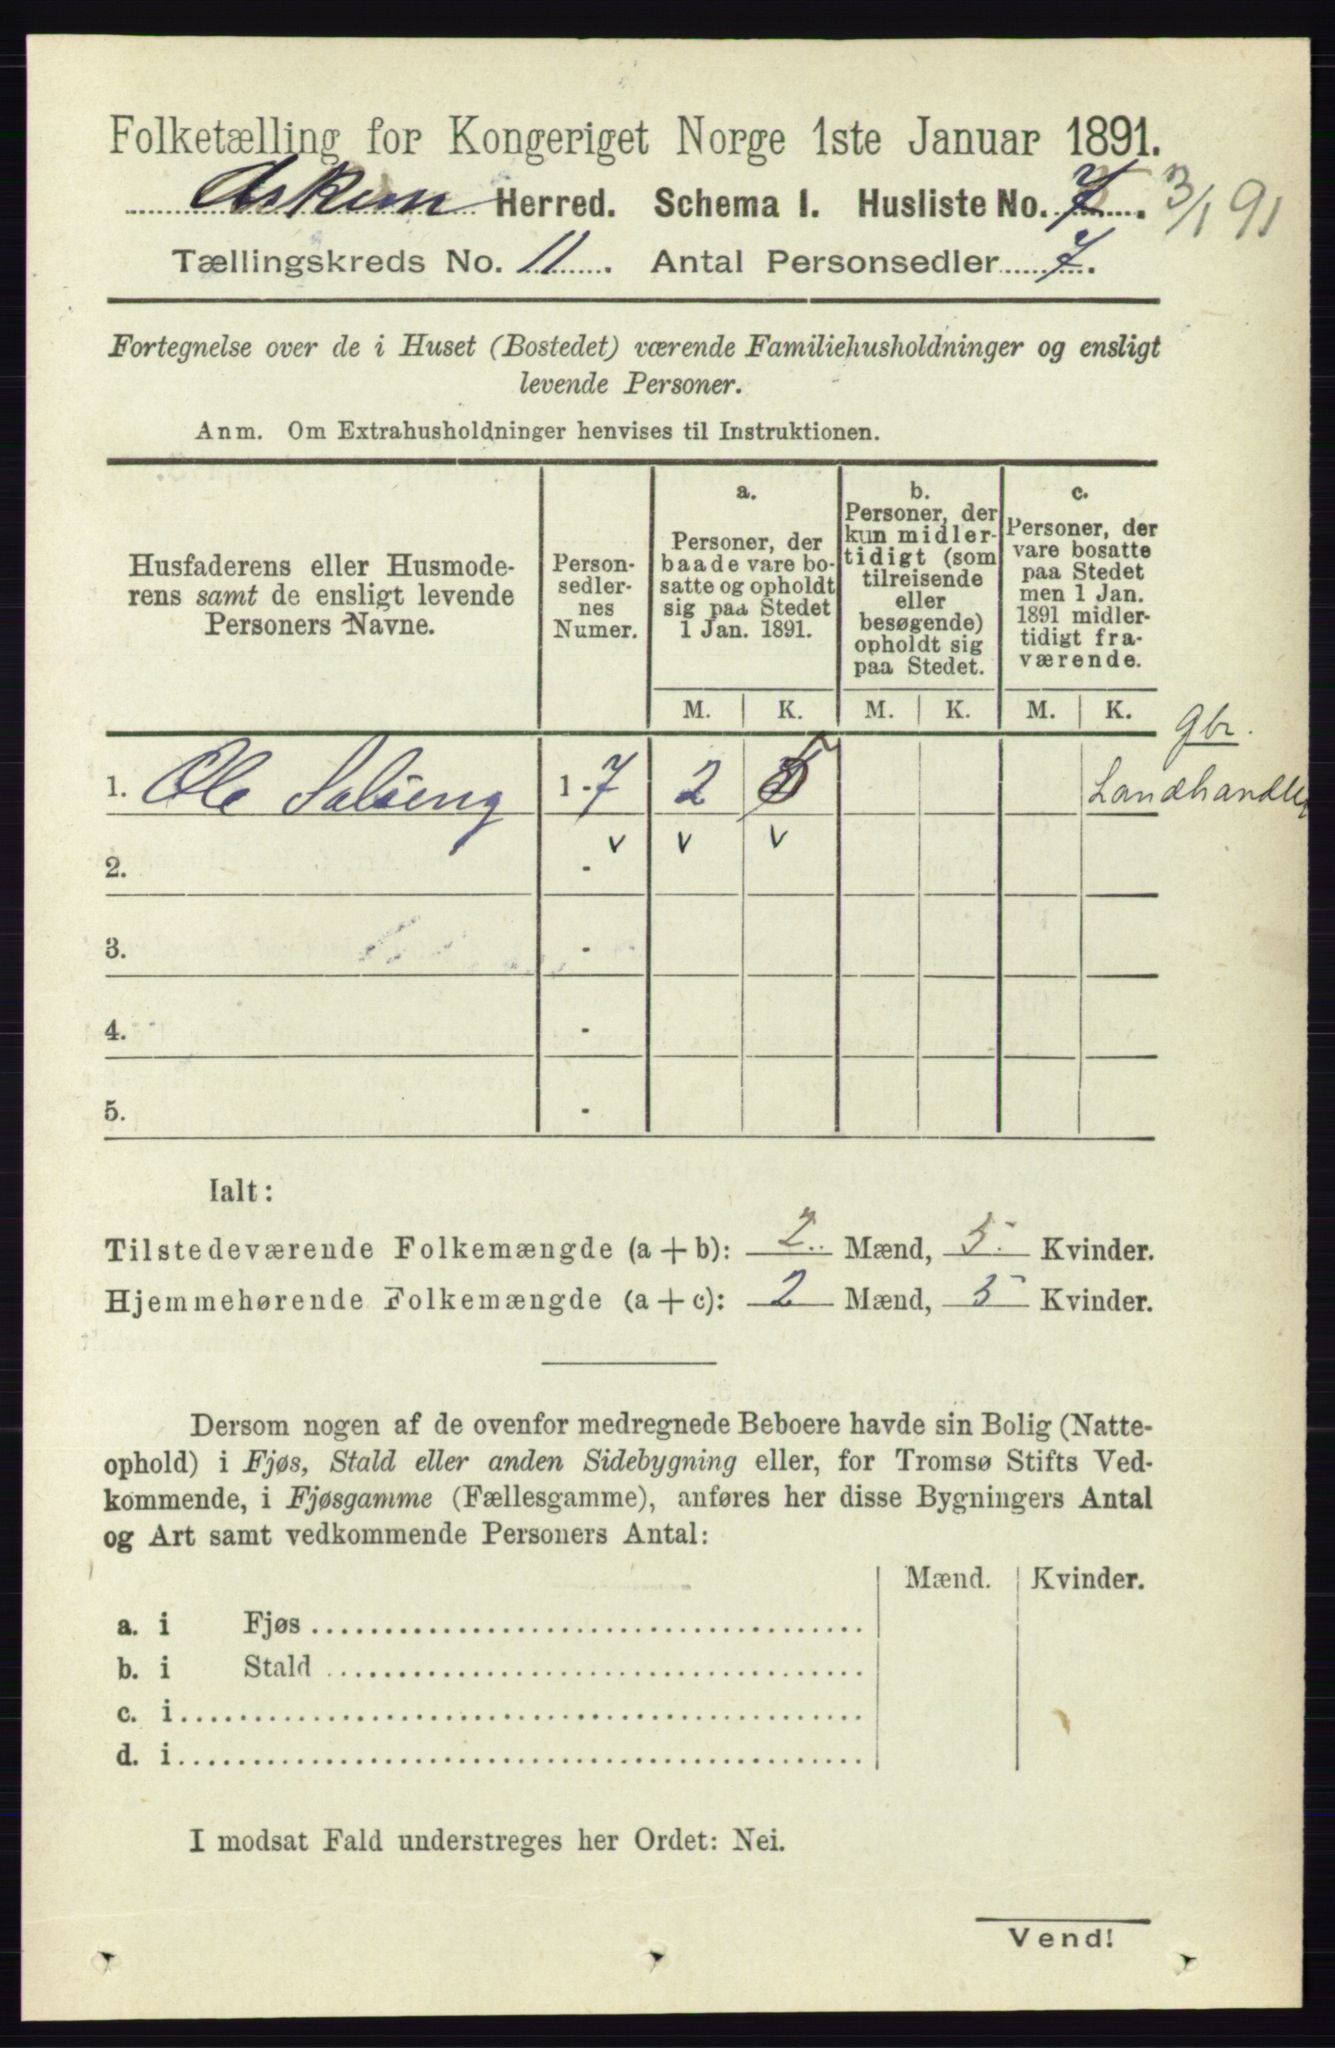 Folketælling for Kongeriget Norge 1ste Januar 1891.
Askim Herred. Schema I. Husliste No. 7. 3/1 91
Tællingskreds No. 11. Antal Personsedler 7.
Fortegnelse over de i Huset (Bostedet) værende Familiehusholdninger og ensligt
levende Personer.
Anm. Om Extrahusholdninger henvises til Instruktionen.
Husfaderens eller Husmode-
rens samt de ensligt levende
Personers Navne.
Person-
sedler-
nes
Numer.
a.
Personer, der
baade vare bo-
satte og opholdt
sig paa Stedet
1 Jan. 1891.
b.
Personer, der
kun midler-
tidigt (som
tilreisende
eller
besøgende)
opholdt sig
paa Stedet.
c.
Personer, der
vare bosatte
paa Stedet
men 1 Jan.
1891 midler-
tidigt fra-
værende.
M. K. M. K. M. K.
Gbr.
1. Ole 1-7 2 5 Landhandler
v v v
2. -
3. -
4. -
5. -
Ialt:
Tilstedeværende Folkemængde (a + b): 2 Mænd, 5 Kvinder.
Hjemmehørende Folkemængde (a + c): 2 Mænd, 5 Kvinder.
Dersom nogen af de ovenfor medregnede Beboere havde sin Bolig (Natte-
ophold) i Fjøs, Stald eller anden Sidebygning eller, for Tromsø Stifts Ved-
kommende, i Fjøsgamme (Fællesgamme), anføres her disse Bygningers Antal
og Art samt vedkommende Personers Antal:
Mænd. Kvinder.
a. i Fjøs
b. i Stald
c. i
d. i
I modsat Fald understreges her Ordet: Nei.
Vend!